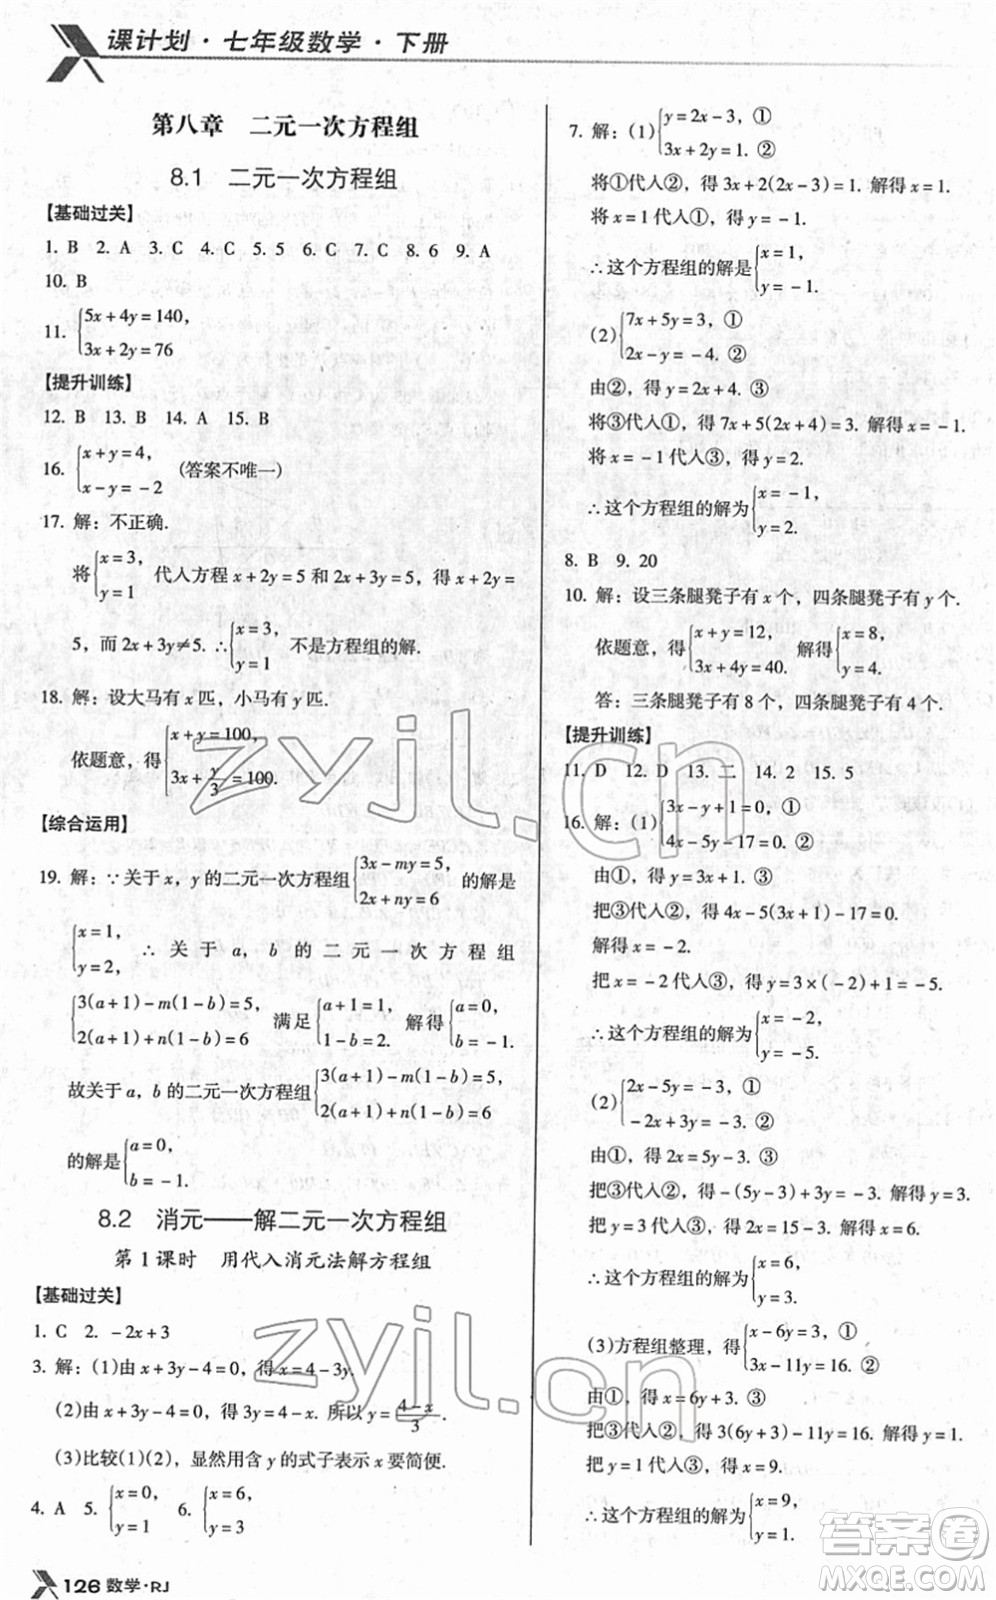 课计划·七年级数学·下册
第八章 二元一次方程组
8.1 二元一次方程组
【基础过关】
1. B 2. A 3. C 4. C 5. 5 6. C 7. C 8. 6 9. A
10. B
11. {5x+4y=140,
3x+2y=76
【提升训练】
12. B 13. B 14. A 15. B
16. {x+y=4,
x-y=-2 (答案不唯一)
17. 解:不正确.
将{x=3,
y=1 代人方程 x+2y=5 和 2x+3y=5, 得 x+2y=
5, 而 2x+3y≠5. ∴{x=3,
y=1 不是方程组的解.
18. 解:设大马有 x 匹, 小马有 y 匹.
依题意, 得{x+y=100,
3x+y/3=100.
【综合运用】
19. 解:∵关于 x, y 的二元一次方程组{3x-my=5,
2x+ny=6 的解是
{x=1,
y=2, ∴关于 a, b 的二元一次方程组
{3(a+1)-m(1-b)=5,
2(a+1)+n(1-b)=6 满足{a+1=1,
1-b=2. 解得{a=0,
b=-1.
故关于 a, b 的二元一次方程组{3(a+1)-m(1-b)=5,
2(a+1)+n(1-b)=6
的解是{a=0,
b=-1.
8.2 消元——解二元一次方程组
第 1 课时 用代入消元法解方程组
【基础过关】
1. C 2. -2x+3
3. 解:(1)由 x+3y-4=0, 得 x=4-3y.
(2)由 x+3y-4=0, 得 3y=4-x. 所以 y=(4-x)/3.
(3)比较(1)(2), 显然用含 y 的式子表示 x 较简便.
4. A 5. {x=0,
y=1 6. {x=6,
y=3
126 数学·RJ
7. 解:(1){y=2x-3, ①
3x+2y=1. ②
将①代人②, 得 3x+2(2x-3)=1. 解得 x=1.
将 x=1 代人①, 得 y=-1.
∴这个方程组的解是{x=1,
y=-1.
(2){7x+5y=3, ①
2x-y=-4. ②
由②, 得 y=2x+4. ③
将③代人①, 得 7x+5(2x+4)=3. 解得 x=-1.
将 x=-1 代人③, 得 y=2.
∴这个方程组的解为{x=-1,
y=2.
8. B 9. 20
10. 解:设三条腿凳子有 x 个, 四条腿凳子有 y 个.
依题意, 得{x+y=12,
3x+4y=40. 解得{x=8,
y=4.
答:三条腿凳子有 8 个, 四条腿凳子有 4 个.
【提升训练】
11. D 12. D 13. 二 14. 2 15. 5
16. 解:(1){3x-y+1=0, ①
4x-5y-17=0. ②
由①, 得 y=3x+1. ③
把③代人②, 得 4x-5(3x+1)-17=0.
解得 x=-2.
把 x=-2 代人③, 得 y=3×(-2)+1=-5.
∴这个方程组的解为{x=-2,
y=-5.
(2){2x-5y=-3, ①
-2x+3y=-3. ②
由①, 得 2x=5y-3. ③
把③代人②, 得 -(5y-3)+3y=-3. 解得 y=3.
把 y=3 代人③, 得 2x=15-3. 解得 x=6.
∴这个方程组的解为{x=6,
y=3.
(3)方程组整理, 得{x-6y=3, ①
3x-11y=16. ②
由①, 得 x=6y+3. ③
把③代人②, 得 3(6y+3)-11y=16. 解得 y=1.
把 y=1 代人③, 得 x=9.
∴这个方程组的解为{x=9,
y=1.
zyjl.cn
zyjl.cn
答案圈
MXQE.COM